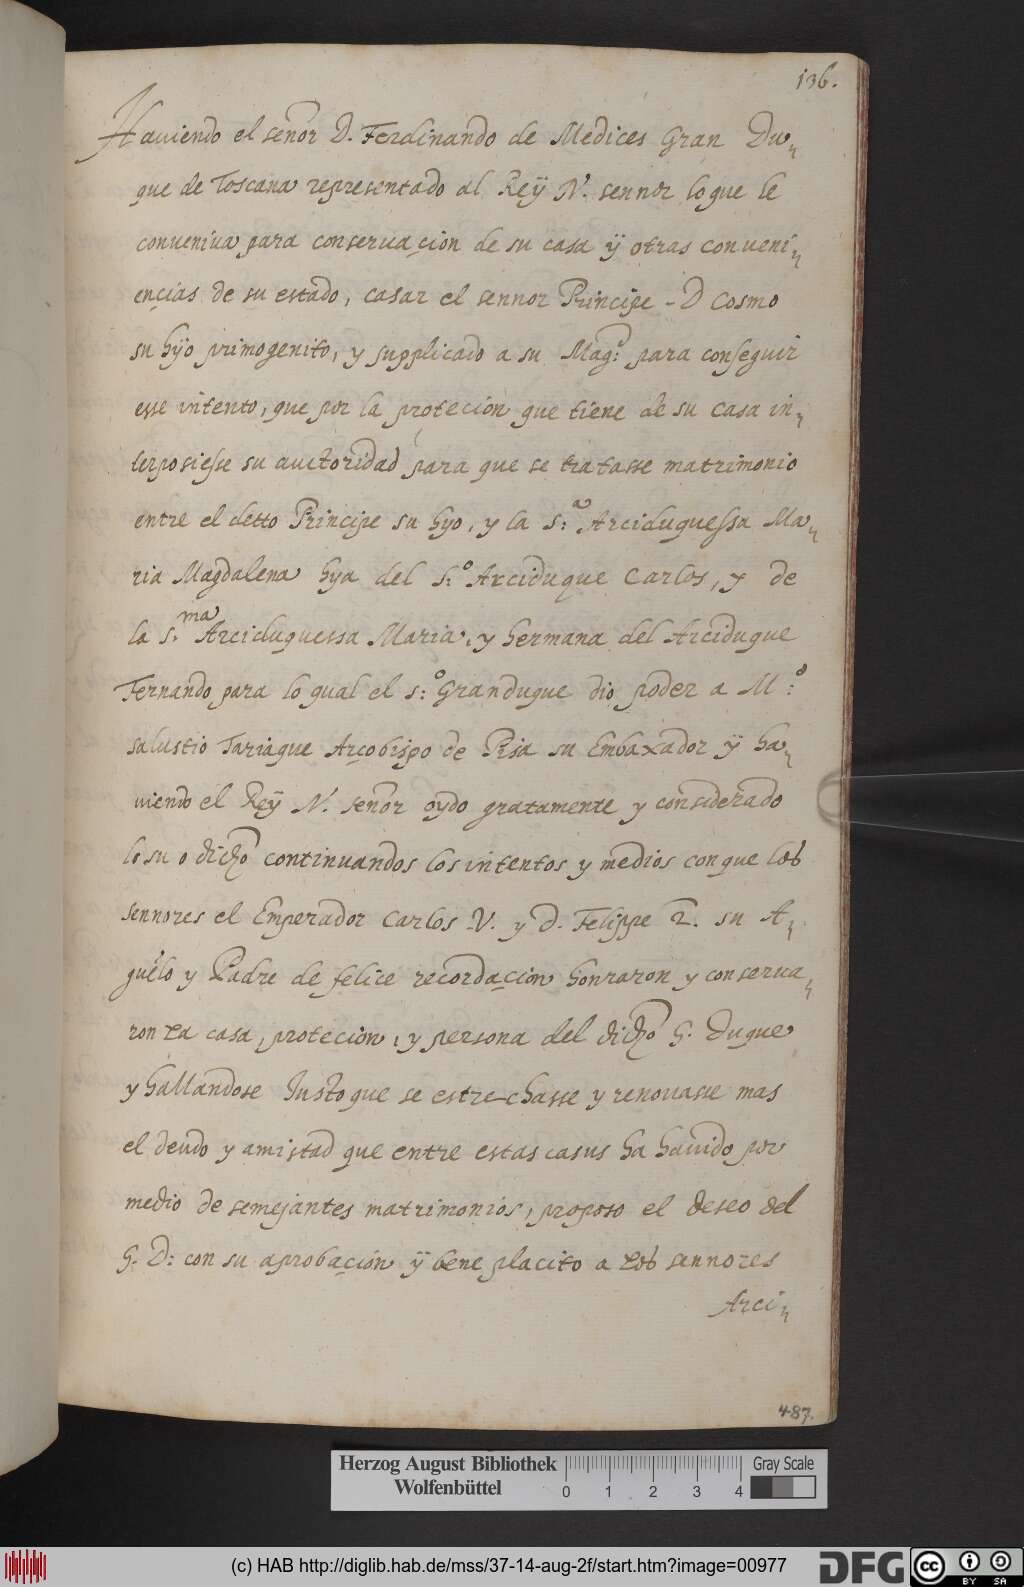 136.
Hauiendo el señor D. Ferdinando de Medices Gran Du„
que de Toscana representado al Reÿ N. sennor lo que le
conueniua para conseruaçion de su casa ÿ otras conueni„
encias de su estado, casar el sennor Principe - D Cosmo
su hÿo primogenito, y supplicado a su Mag:d para conseguir
esse intento, que por la protecion que tiene de su casa in„
terposiesse su auctoridad para que se tratasse matrimonio
entre el detto Principe su hyo, y la S:a Arciduquessa Ma„
ria Magdalena hya del S:o Arciduque Carlos, y de
la S.ma Arciduquessa Maria, y hermana del Arciduque
Fernando para lo qual el s:o Granduque dio poder a M:o
salustio Tariague Arçobispo de Pisa su Embaxador ÿ ha„
uiendo el Reÿ N. señor oydo gratamente y considerado
lo su o dicho continuandos los intentos y medios con que los
sennores el Emperador Carlos V. y D. Felippe 2. su A„
guelo y Padre de felice recordaçion honraron y conserua„
ron la casa, protecion, y persona del dicho G. Duque
y hallandose Justo que se estrechasse y renouasse mas
el deudo y amistad que entre estas casus ha hauido por
medio de semejantes matrimonios, proposo el deseo del
G. D: con su aprobaçion ÿ bene placito a los sennores
Arci„
487.
Herzog August Bibliothek
Wolfenbüttel
0 1 2 3 4
Gray Scale
(c) HAB http://diglib.hab.de/mss/37-14-aug-2f/start.htm?image=00977
DFG
cc BY SA